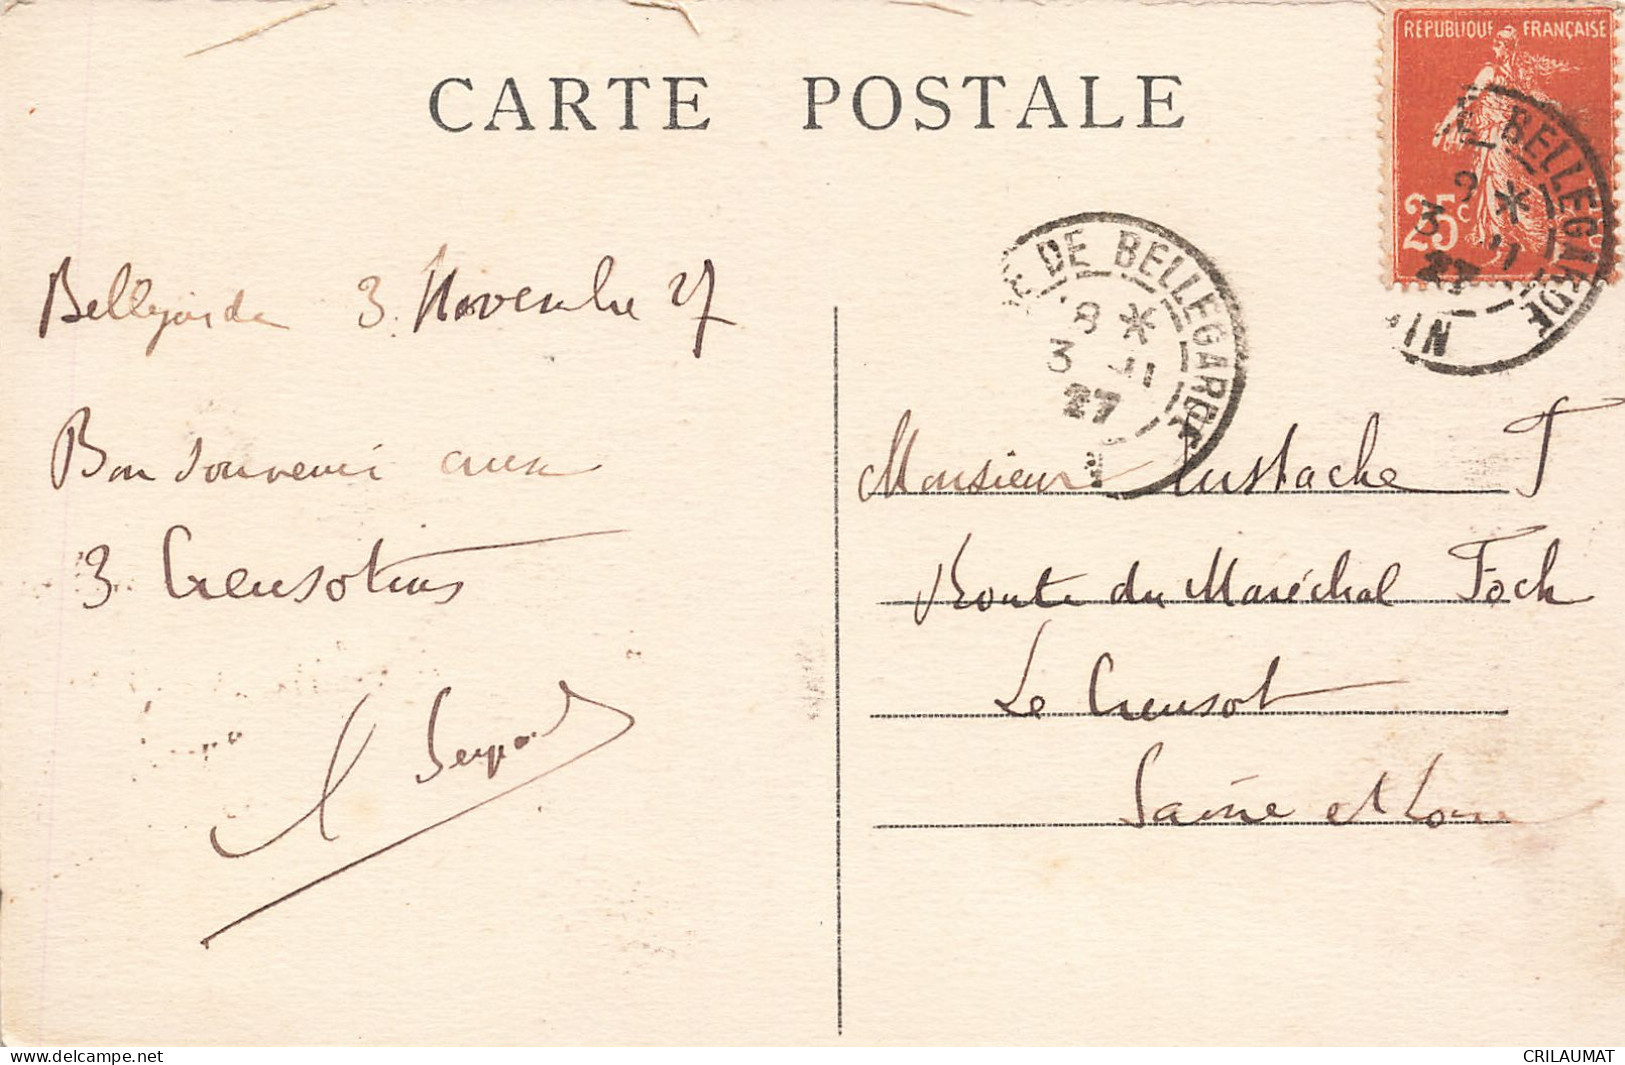 CARTE POSTALE
REPUBLIQUE FRANÇAISE
25c
DE BELLEGARDE
8 *
3 11
27
BELLEGARDE
3 11
27
Bellegarde 3 Novembre 27
Bon souvenir aux
3 Creusotins
Monsieur Eustache T
Route du Maréchal Foch
Le Creusot
Saône et Loire
delcampe.net
CRILAUMAT